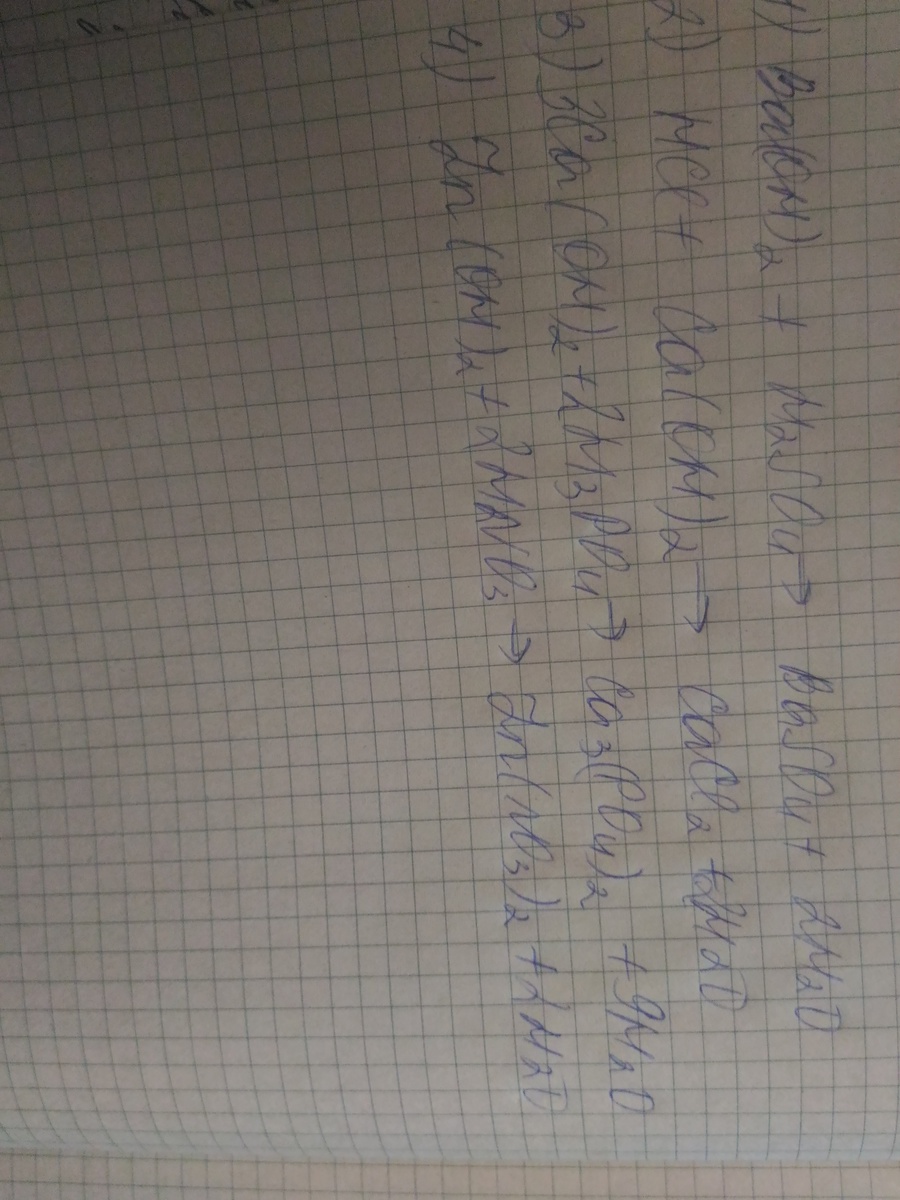 1) Ba(OH)2 + H2SO4 → BaSO4 + 2H2O
2) HCl + Ca(OH)2 → CaCl2 + 2H2O
3) 3Ca(OH)2 + 2H3PO4 → Ca3(PO4)2 + 9H2O
4) Zn(OH)2 + 2HNO3 → Zn(NO3)2 + 2H2O